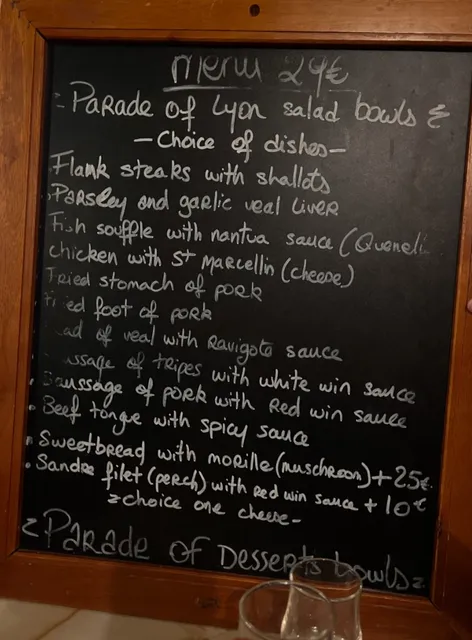 Menu 29€
- Parade of Lyon salad bowls -
- Choice of dishes -
Flank steaks with shallots
Parsley and garlic veal liver
Fish souffle with nantua sauce (Quenell
chicken with St Marcellin (cheese)
Fried stomach of pork
Fried foot of pork
ead of veal with Ravigote sauce
aussage of tripes with white win sauce
• Saussage of pork with Red win sauce
• Beef tongue with spicy sauce
• Sweetbread with morille (muschroom) + 25€
• Sandre filet (perch) with red win sauce + 10€
- choice one cheese -
- Parade of Desserts bowls -